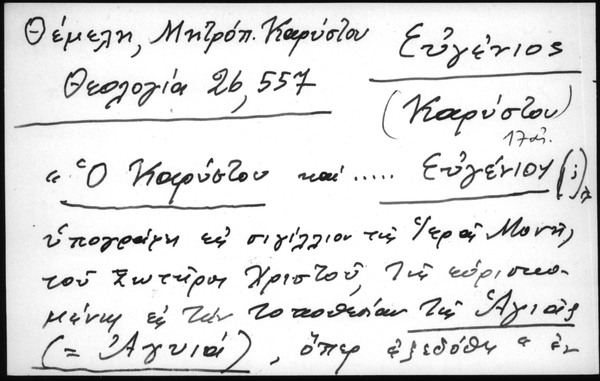 Θέμελη, Μητρόπ. Καρύστου
Θεολογία 26, 557
Εὐγένιος
(Καρύστου)
17 αἰ.
"Ὁ Καρύστου καὶ ..... Εὐγένιος (;)
ὑπογράφει εἰς σιγίλλιον τῆς Ἱερᾶς Μονῆς
τοῦ Σωτῆρος Χριστοῦ, τῆς εὑρισκο-
μένης εἰς τὴν τοποθεσίαν τῆς Ἁγιᾶς
(= Ἀγυιά), ὅπερ ἐξεδόθη " ἐν